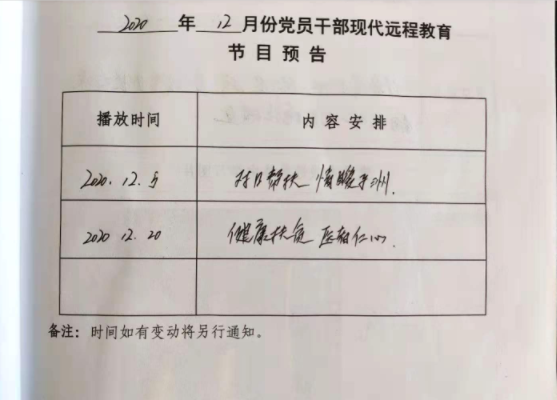 2020 年 12 月份党员干部现代远程教育
节目预告
播放时间 内容安排
2020.12.5 对口帮扶 情暖于洲.
2020.12.20 健康扶贫 医者仁心.
备注：时间如有变动将另行通知。